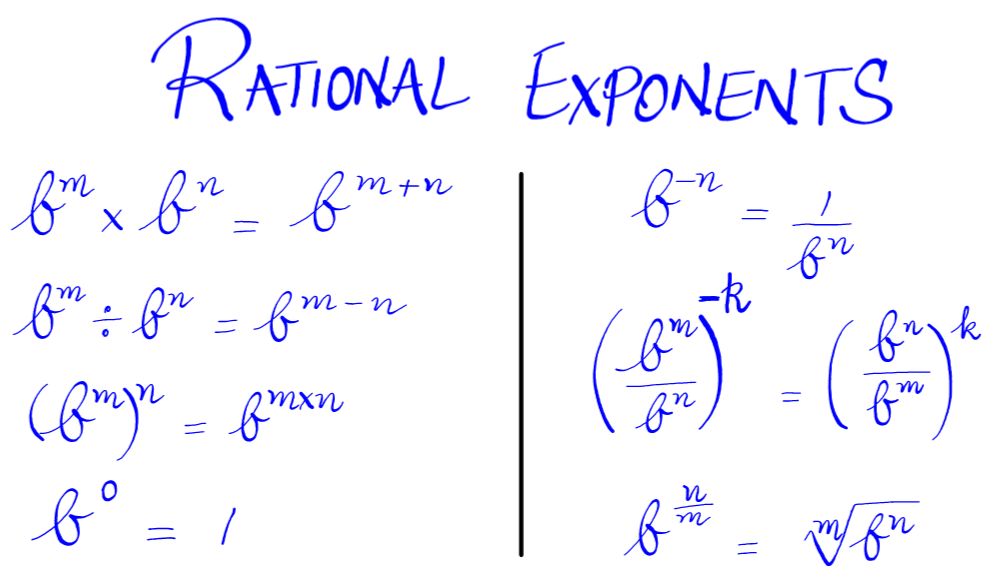 RATIONAL EXPONENTS
b^m × b^n = b^{m+n}
b^m ÷ b^n = b^{m-n}
(b^m)^n = b^{m×n}
b^0 = 1
b^{-n} = \frac{1}{b^n}
(\frac{b^m}{b^n})^{-k} = (\frac{b^n}{b^m})^k
b^{\frac{n}{m}} = \sqrt[m]{b^n}